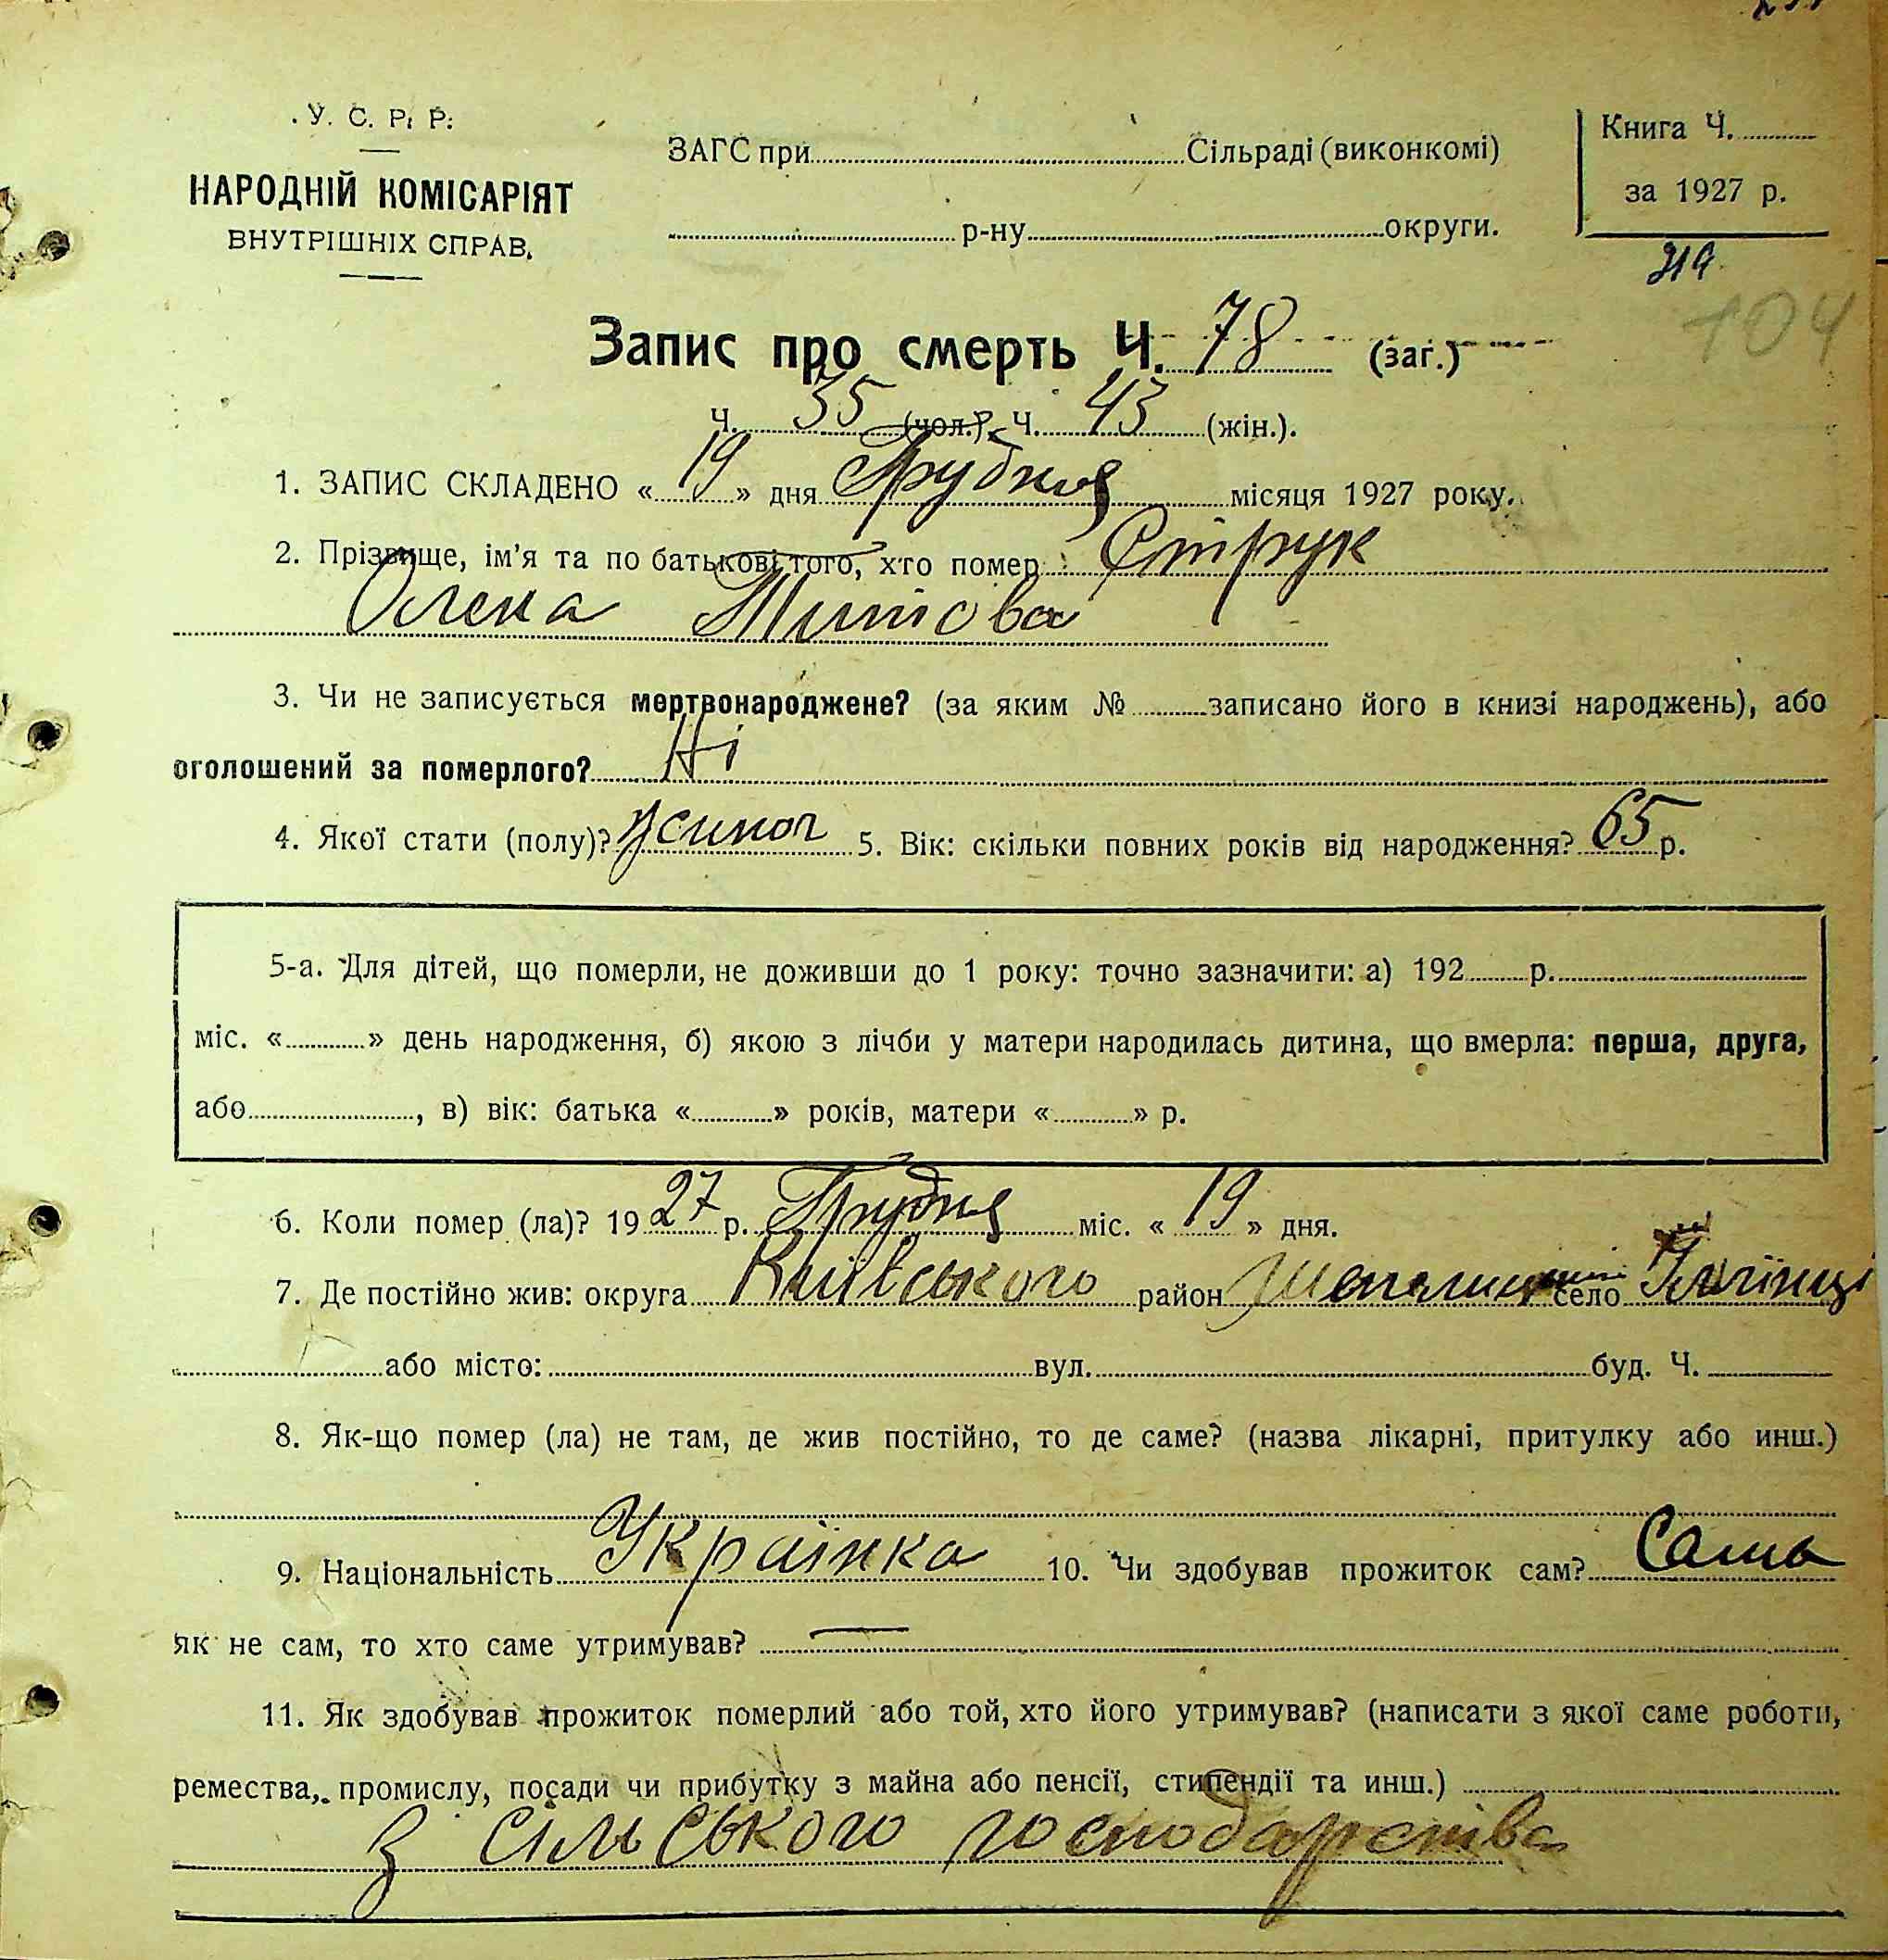 У. С. Р. Р.
НАРОДНІЙ КОМІСАРІЯТ
ВНУТРІШНІХ СПРАВ.
ЗАГС при Сільраді (виконкомі)
р-ну округи.
Книга Ч.
за 1927 р.
219
104
Запис про смерть Ч. 78 (заг.)
Ч. 35 (чол.), Ч. 43 (жін.).
1. ЗАПИС СКЛАДЕНО « 19 » дня Грудня місяця 1927 року.
2. Прізвище, ім'я та по батькові того, хто помер: Струк
Олена Титова
3. Чи не записується мертвонароджене? (за яким № записано його в книзі народжень), або
оголошений за померлого? Ні
4. Якої стати (полу)? жіноч 5. Вік: скільки повних років від народження? 65 р.
5-а. Для дітей, що померли, не доживши до 1 року: точно зазначити: а) 192 р.
міс. « » день народження, б) якою з лічби у матери народилась дитина, що вмерла: перша, друга,
або , в) вік: батька « » років, матери « » р.
6. Коли помер (ла)? 19 27 р. Грудня міс. « 19 » дня.
7. Де постійно жив: округа Київського район село
або місто: вул. буд. Ч.
8. Як-що помер (ла) не там, де жив постійно, то де саме? (назва лікарні, притулку або инш.)
9. Національність Українка 10. Чи здобував прожиток сам? Сама
як не сам, то хто саме утримував? —
11. Як здобував прожиток померлий або той, хто його утримував? (написати з якої саме роботи,
ремества, промислу, посади чи прибутку з майна або пенсії, стипендії та инш.)
З сільського господарства